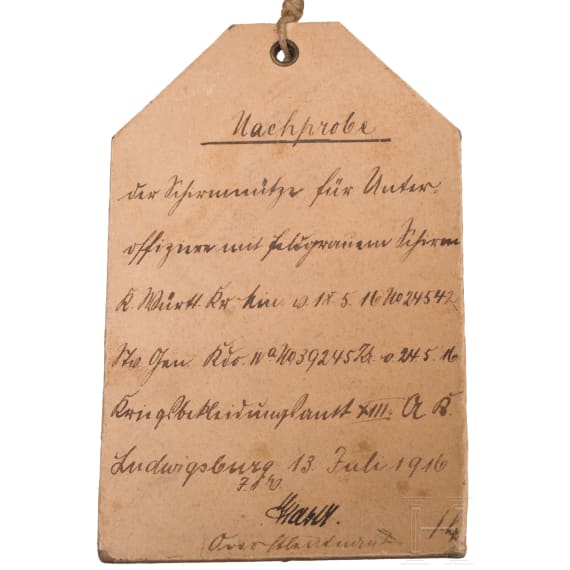 Nachprobe
der Schirmmütze für Unter-
offiziere mit feldgrauem Schirm
K. Württ. Kr. Min. v 18.5.16 No 24542
Stv. Gen. Kdo. IVa No 39245 v 24.5.16
Kriegsbekleidungsamt XIII. A. K.
Ludwigsburg, 13. Juli 1916
Oberstleutnant
14